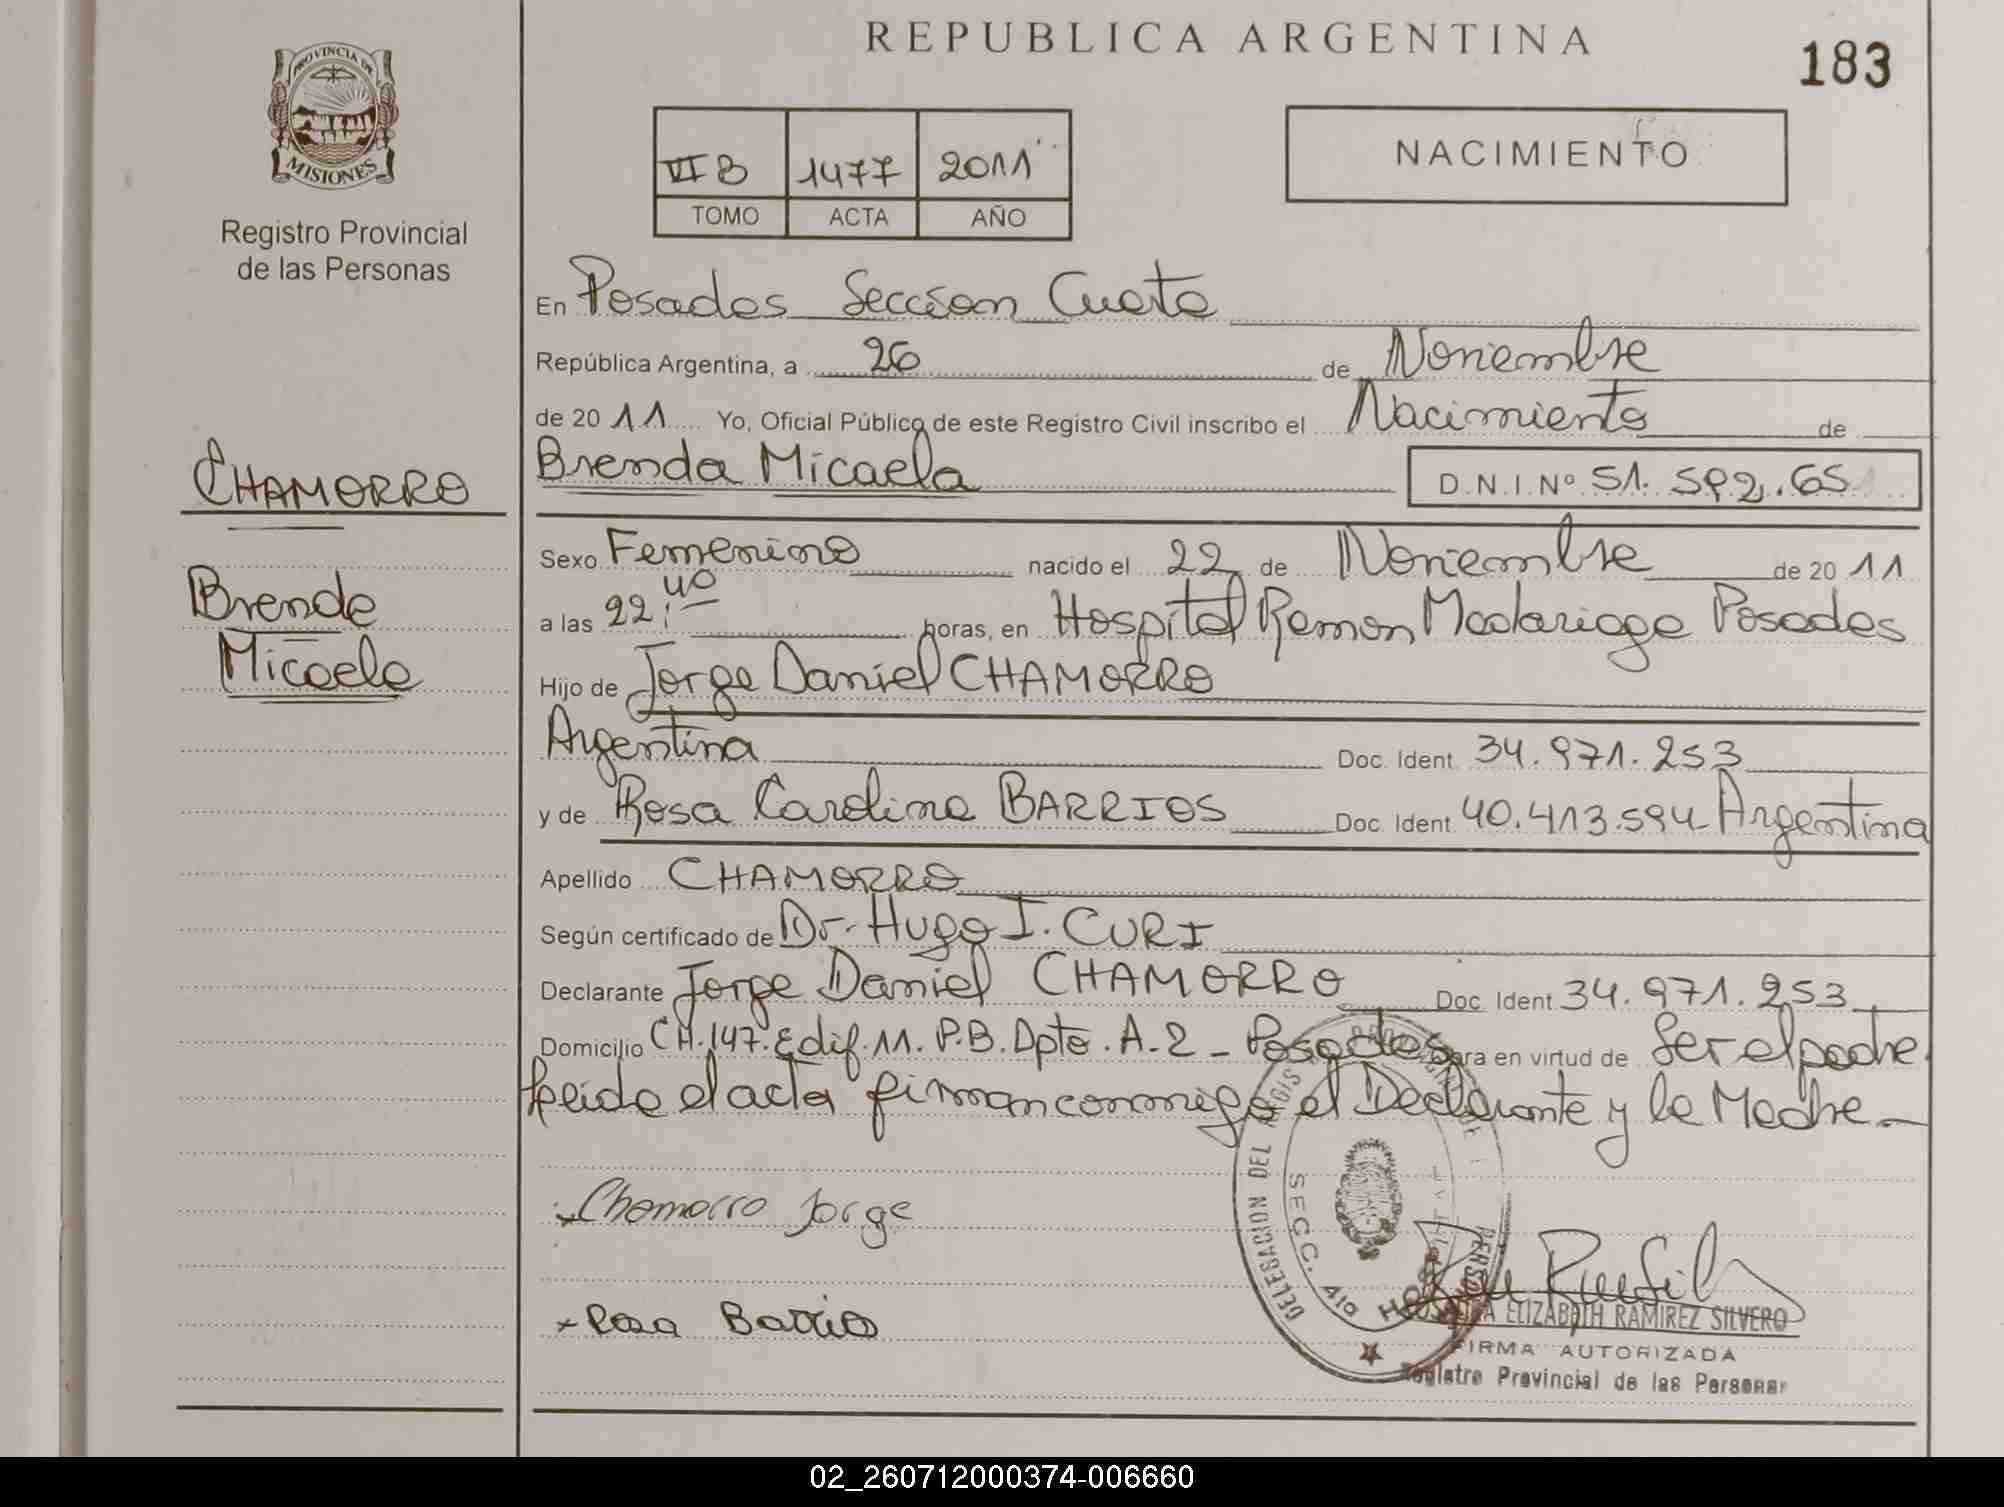 REPUBLICA ARGENTINA
183
PROVINCIA DE
MISIONES
Registro Provincial
de las Personas
VI B 1477 2011
TOMO ACTA AÑO
NACIMIENTO
En Posadas Sección Cuarta
República Argentina, a 26 de Noviembre
de 2011 Yo, Oficial Público de este Registro Civil inscribo el Nacimiento de
CHAMORRO
Brenda Micaela D.N.I.Nº 51.592.65
Sexo Femenino nacido el 22 de Noviembre de 2011
Brenda
Micaela
a las 22:40 horas, en Hospital Ramon Madariaga Posadas
Hijo de Jorge Daniel CHAMORRO
Argentina Doc. Ident. 34.971.253
y de Rosa Carolina BARRIOS Doc. Ident. 40.413.594 Argentina
Apellido CHAMORRO
Según certificado de Dr. Hugo I. CURI
Declarante Jorge Daniel CHAMORRO Doc. Ident. 34.971.253
Domicilio CH.147.Edif.11.P.B.Dpto.A-2 - Posadas en virtud de Ser el padre
leida el acta firman conmigo el Declarante y la Madre
DELEGACION DEL
SECC. 4ta
x Chamorro Jorge
x Rosa Barrios
ELIZABETH RAMIREZ SILVERO
FIRMA AUTORIZADA
Registro Provincial de las Personas
02_260712000374-006660